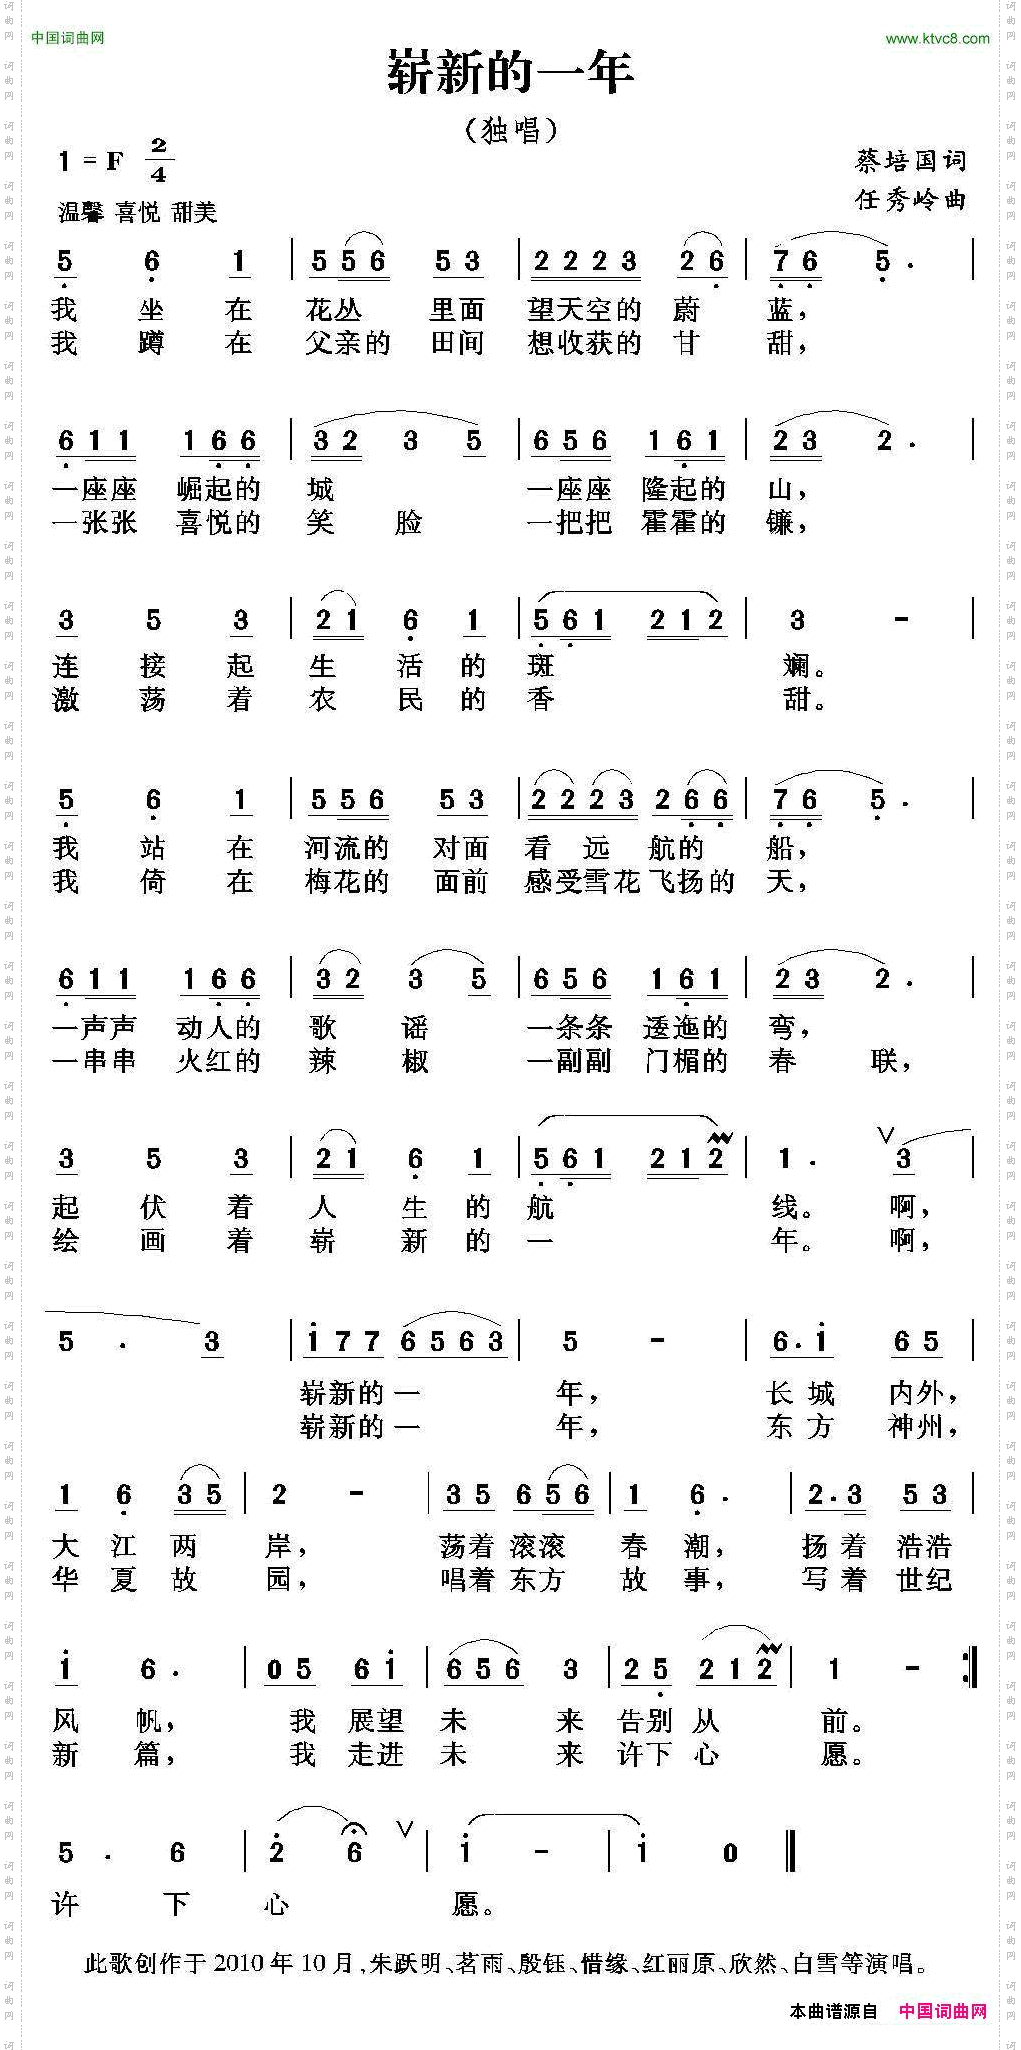 中国词曲网 www.ktvc8.com
崭新的一年
（独唱）
1 = F 2/4
蔡培国词
温馨 喜悦 甜美
任秀岭曲
5 6 1 | 5 5 6 5 3 | 2 2 2 3 2 6 | 7 6 5 . |
我 坐 在 花丛 里面 望天空的 蔚 蓝，
我 蹲 在 父亲的 田间 想收获的 甘 甜，
6 1 1 1 6 6 | 3 2 3 5 | 6 5 6 1 6 1 | 2 3 2 . |
一座座 崛起的 城 一座座 隆起的 山，
一张张 喜悦的 笑 脸 一把把 霍霍的 镰，
3 5 3 | 2 1 6 1 | 5 6 1 2 1 2 | 3 - |
连 接 起 生 活 的 斑 斓。
激 荡 着 农 民 的 香 甜。
5 6 1 | 5 5 6 5 3 | 2 2 2 3 2 6 6 | 7 6 5 . |
我 站 在 河流的 对面 看 远 航的 船，
我 倚 在 梅花的 面前 感受雪花 飞扬的 天，
6 1 1 1 6 6 | 3 2 3 5 | 6 5 6 1 6 1 | 2 3 2 . |
一声声 动人的 歌 谣 一条条 逶迤的 弯，
一串串 火红的 辣 椒 一副副 门楣的 春 联，
3 5 3 | 2 1 6 1 | 5 6 1 2 1 2 | 1 . 3 |
起 伏 着 人 生 的 航 线。 啊，
绘 画 着 崭 新 的 一 年。 啊，
5 . 3 | i 7 7 6 5 6 3 | 5 - | 6 . i 6 5 |
崭新的 一 年， 长 城 内外，
崭新的 一 年， 东 方 神州，
1 6 3 5 | 2 - | 3 5 6 5 6 | 1 6 . | 2 . 3 5 3 |
大 江 两 岸， 荡着 滚滚 春 潮， 扬 着 浩浩
华 夏 故 园， 唱着 东方 故 事， 写 着 世纪
i 6 . | 0 5 6 i | 6 5 6 3 | 2 5 2 1 2 | 1 - :|
风 帆， 我 展望 未 来 告别 从 前。
新 篇， 我 走进 未 来 许下 心 愿。
5 . 6 | 2 6 | i - | i 0 ‖
许 下 心 愿。
此歌创作于 2010 年 10 月，朱跃明、茗雨、殷钰、惜缘、红丽原、欣然、白雪等演唱。
本曲谱源自 中国词曲网